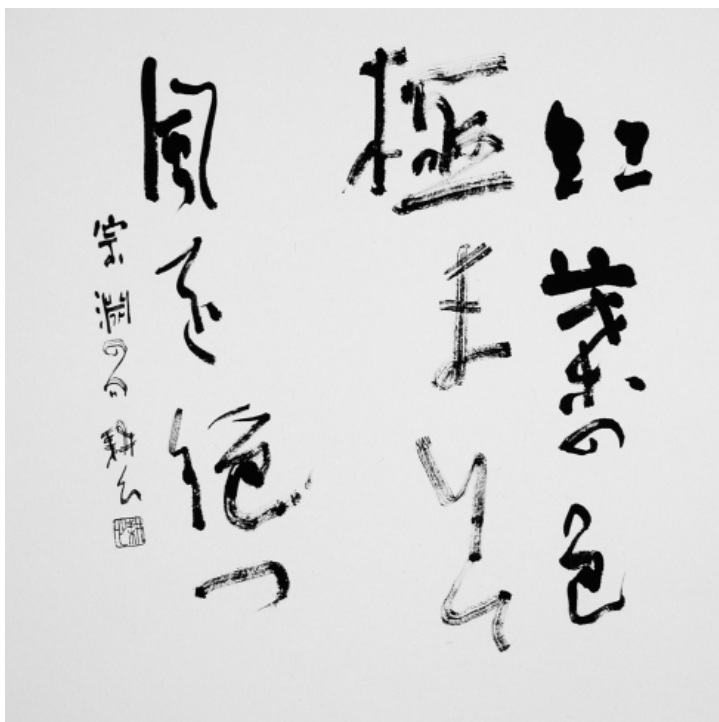 紅葉の色
極まりて
風を絶つ
宗淵の句 耕